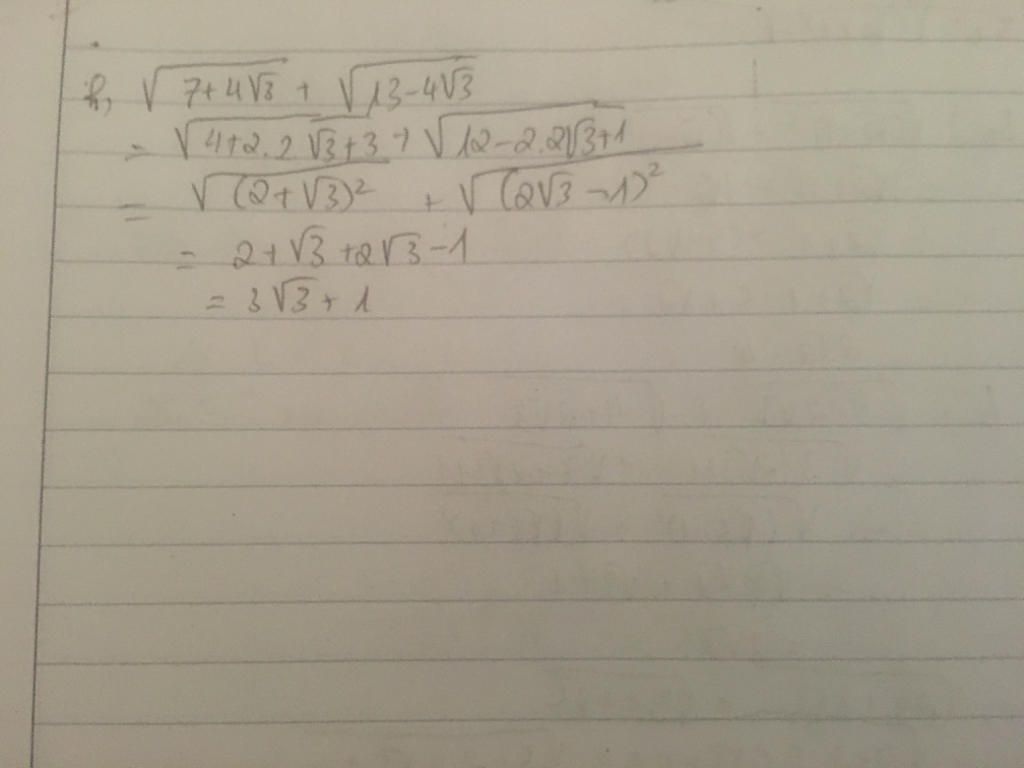 h, √(7+4√3) + √(13-4√3)
= √(4+2.2√3+3) + √(12-2.2√3+1)
= √((2+√3)²) + √((2√3-1)²)
= 2+√3+2√3-1
= 3√3+1